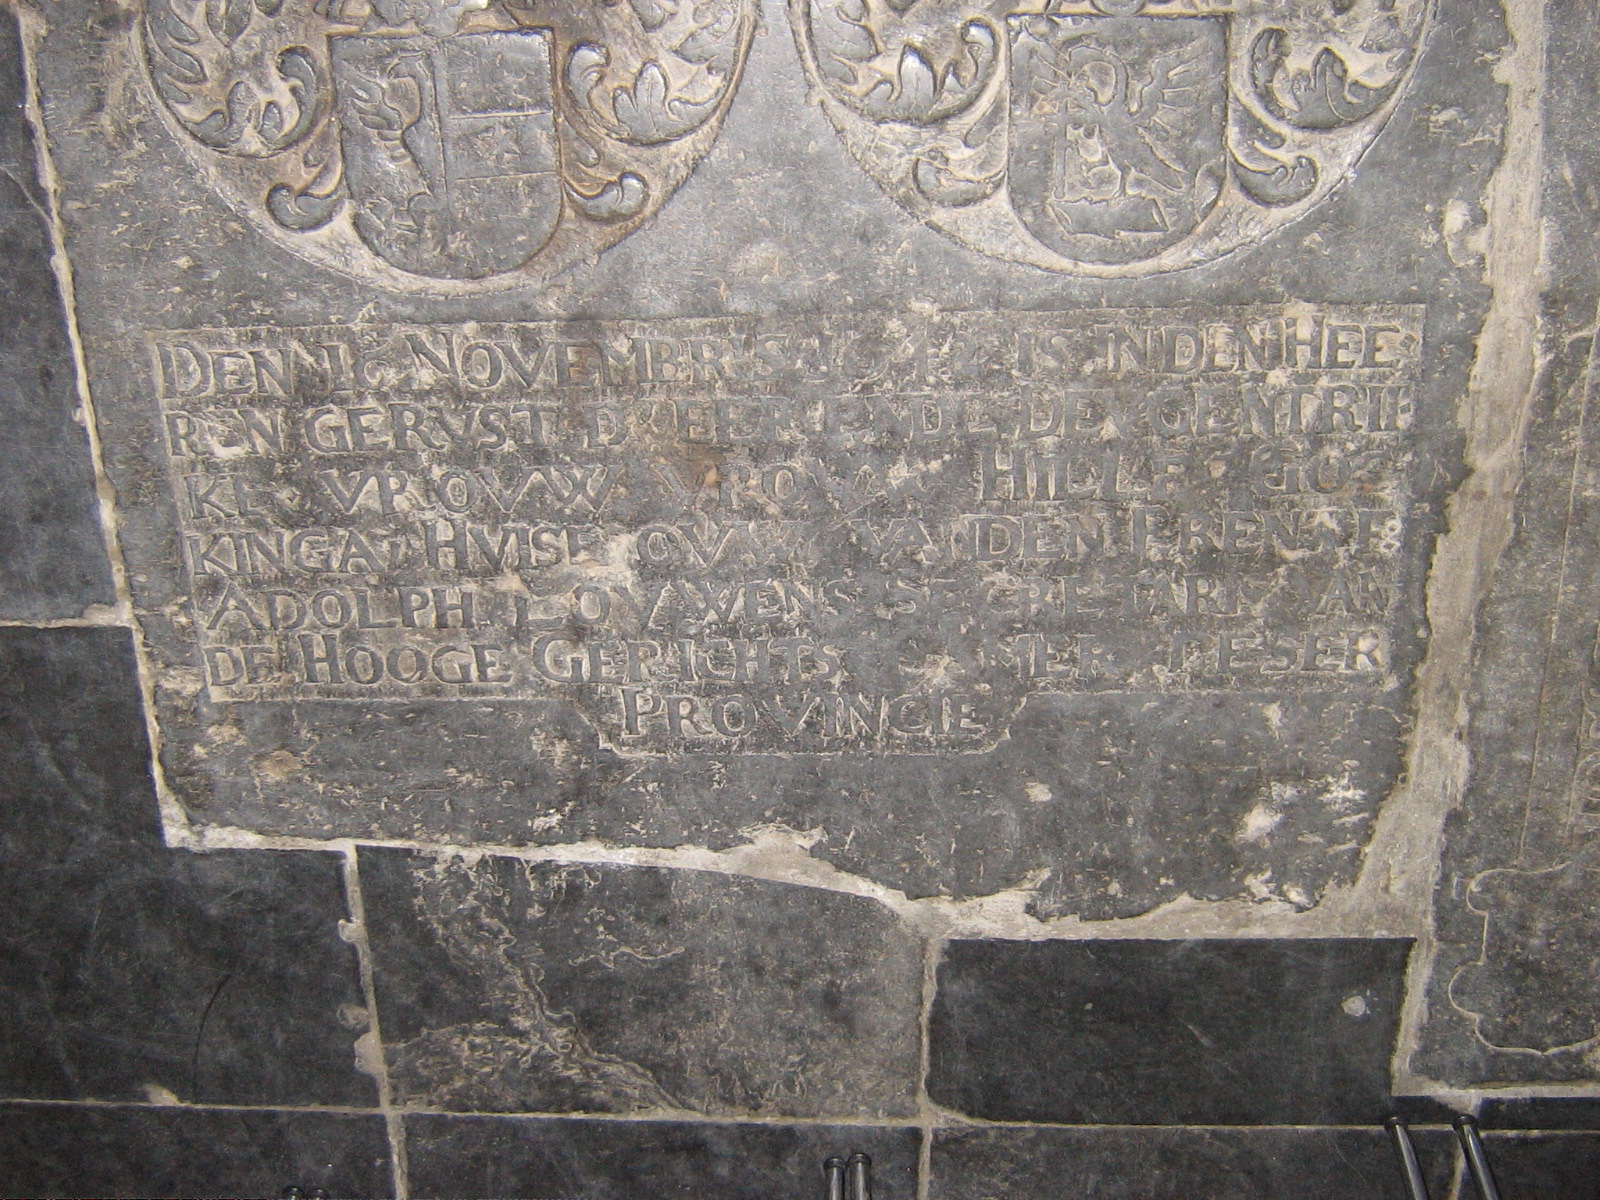 DEN 16 NOVEMBRIS 1642 IS IN DEN HEE
REN GERVST D' EER ENDE DEVGENTRII
KE VROVW VROVW HILLE
KINGA HVISFROVW VAN DEN E
ADOLPH LOVWENS SECRETARIS VAN
DE HOOGE GERICHTS CAMER DESER
PROVINCIE